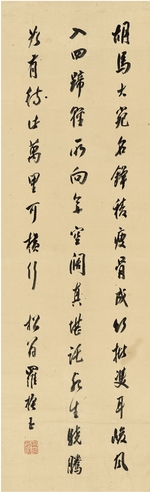 胡馬大宛名鋒稜瘦骨成竹批雙耳峻風
入四蹄輕所向無空闊真堪託死生驍騰
如有此萬里可橫行 松翁羅振玉